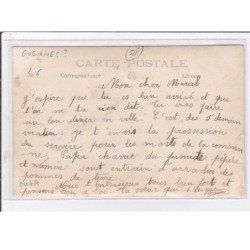 GUGANES?
6€
78
CARTE POSTALE
Correspondance Adresse
Mon cher Marcel
J'espère que tu es bien arrivé et que
l'on ne t'a rien dit. Tu vas faire
un bon diner en ville. C'est dès demain
matin. Je t'envois la prossession
du service pour les morts de la commu
ne. Papa charrit du fumier pépère
et maman sont entrain d'arracher des
pommes de terre.
Nous t'embrassons tous bien fort et
pensons à toi. ta sœur qui t'